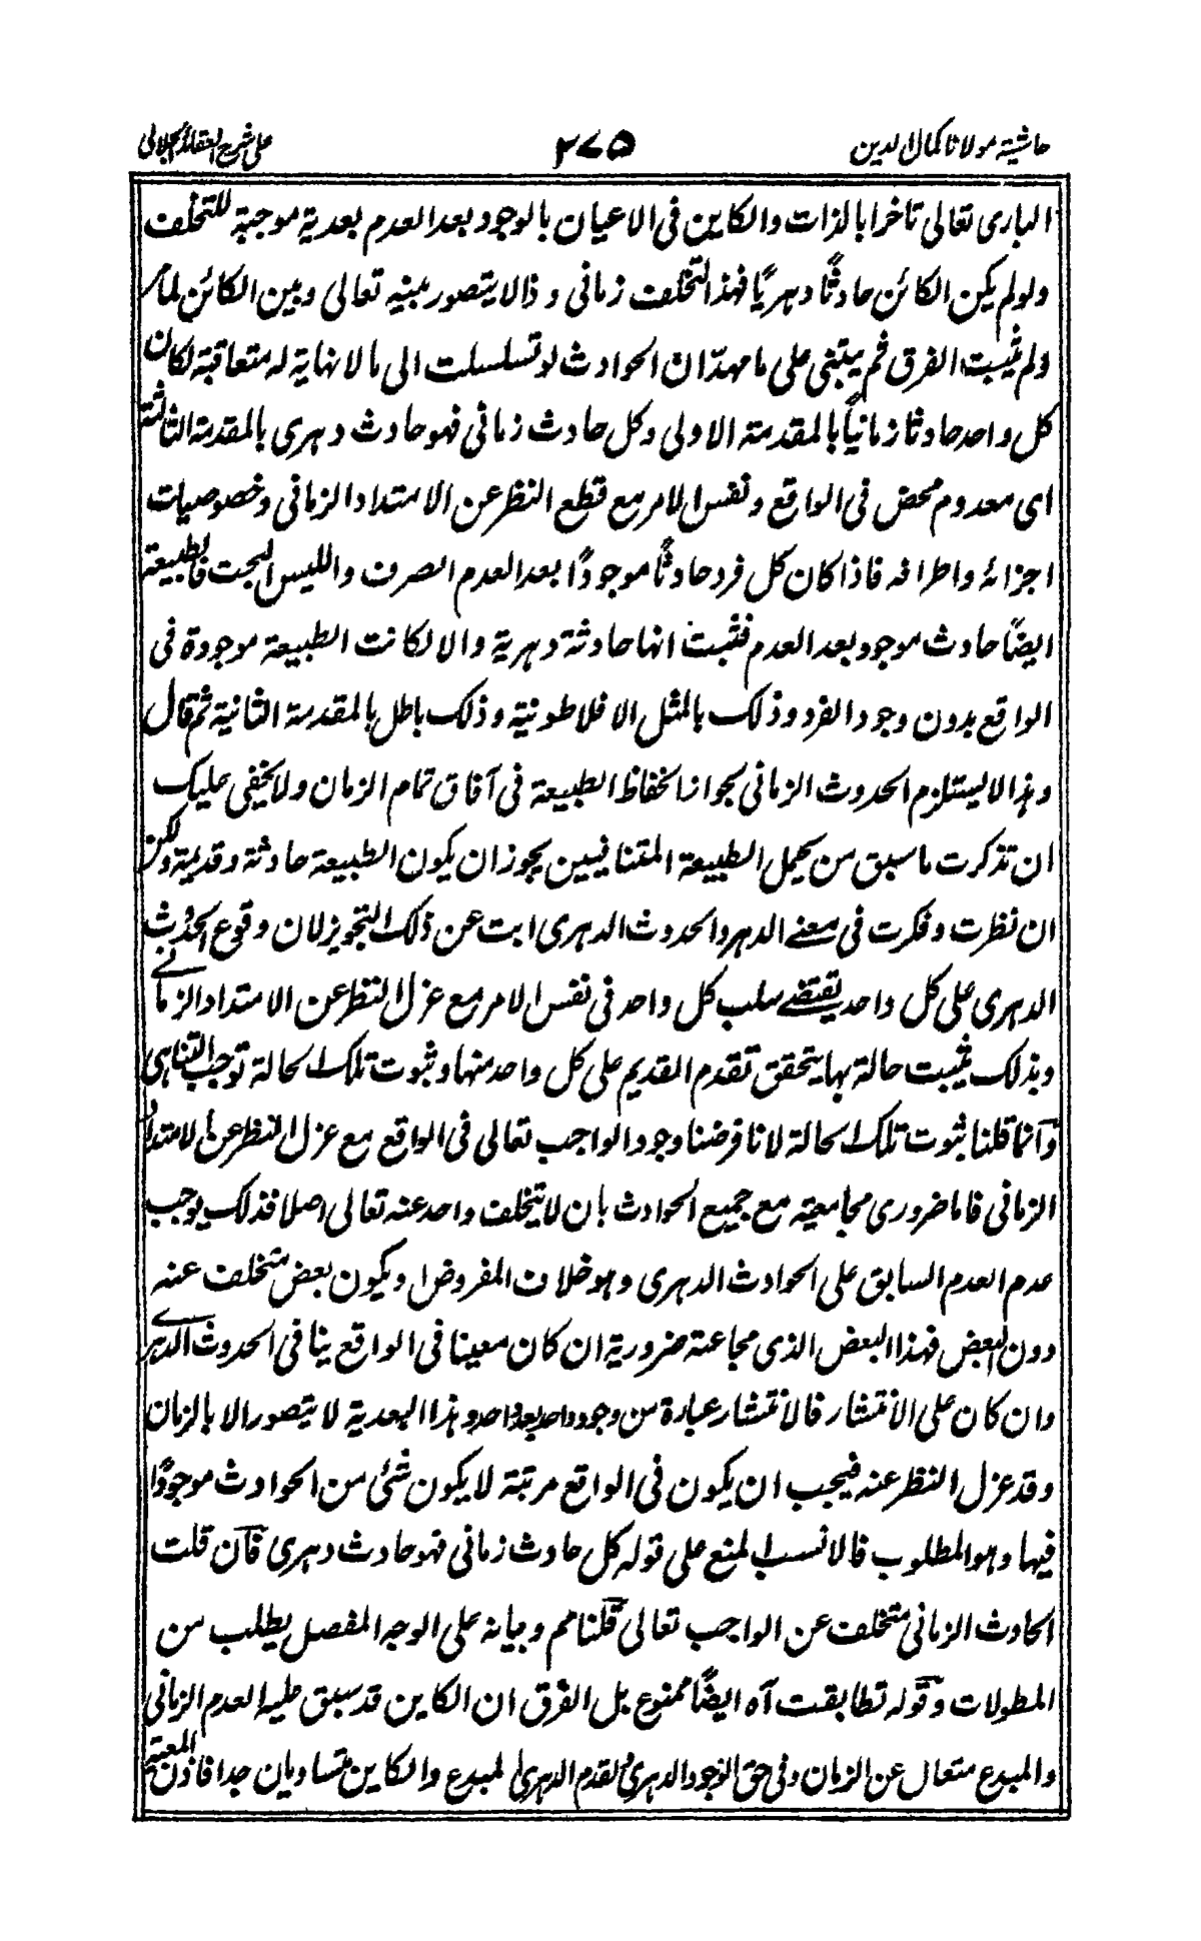 حاشية مولانا كمال الدين
٢٧٥
على شرح العقائد الجلالى
البارى تعالى تاخرا بالذات والكاين فى الاعيان بالوجود بعد العدم بعدية موجبة للتخلف
ولولم يكن الكائن حادثًا دهريًا فهذا التخلف زمانى وذا لا يتصور بينه تعالى وبين الكائن لما مر
ولم يثبت الفرق ثم يبتنى على ما مهد ان الحوادث لو تسلسلت الى مالا نهاية له متعاقبة لكان
كل واحد حادثا زمانياً بالمقدمة الاولى وكل حادث زمانى فهو حادث دهرى بالمقدمة الثالثة
اى معدوم محض فى الواقع ونفس الامر مع قطع النظر عن الامتداد الزمانى وخصوصيات
اجزائه واطرافه فاذا كان كل فرد حادثًا موجودًا بعد العدم الصرف والليس البحت فالطبيعة
ايضًا حادث موجود بعد العدم فثبت انها حادثة دهرية والا لكانت الطبيعة موجودة فى
الواقع بدون وجود الفرد وذلك بالمثل الافلاطونية وذلك باطل بالمقدمة الثانية ثم قال
وهذا لا يستلزم الحدوث الزمانى بجواز انحفاظ الطبيعة فى آفاق تمام الزمان ولا يخفى عليك
ان تذكرت ما سبق من تحمل الطبيعة المتنافيين يجوز ان يكون الطبيعة حادثة وقديمة ولكن
ان نظرت وفكرت فى معنے الدهر والحدوث الدهرى ابت عن ذلك التجويز لان وقوع الحدوث
الدهرى على كل واحد يقتضے سلب كل واحد فى نفس الامر مع عزل النظر عن الامتداد الزمانے
وبذلك يثبت حالة بها يتحقق تقدم القديم على كل واحد منها وثبوت تلك الحالة توجب التناهى
وانما قلنا ثبوت تلك الحالة لانا فرضنا وجود الواجب تعالى فى الواقع مع عزل النظر عن الامتداد
الزمانى فاما ضرورى مجامعية مع جميع الحوادث بان لا يتخلف واحد عنه تعالى اصلا فذلك يوجب
عدم العدم السابق على الحوادث الدهرى وهو خلاف المفروض او يكون بعض متخلف عنه
دون البعض فهذا البعض الذى مجامعته ضرورية ان كان معينا فى الواقع ينافى الحدوث الدهرے
وان كان على الانتشار فالانتشار عبارة من وجود واحد بعد واحد وهذا البعدية لا يتصور الا بالزمان
وقد عزل النظر عنه فيجب ان يكون فى الواقع مرتبة لا يكون شئى من الحوادث موجودًا
فيها وهو المطلوب فالانسب المنع على قوله كل حادث زمانى فهو حادث دهرى فان قلت
الحادث الزمانى متخلف عن الواجب تعالى قلنا مم وبيانه على الوجه المفصل يطلب من
المطولات وقوله تطابقت آه ايضًا ممنوع بل الفرق ان الكاين قد سبق عليه العدم الزمانى
والمبدع متعال عن الزمان وفى حق الوجود الدهرى والقدم الدهرى المبدع والكاين متساويان جدا فاذن المعية